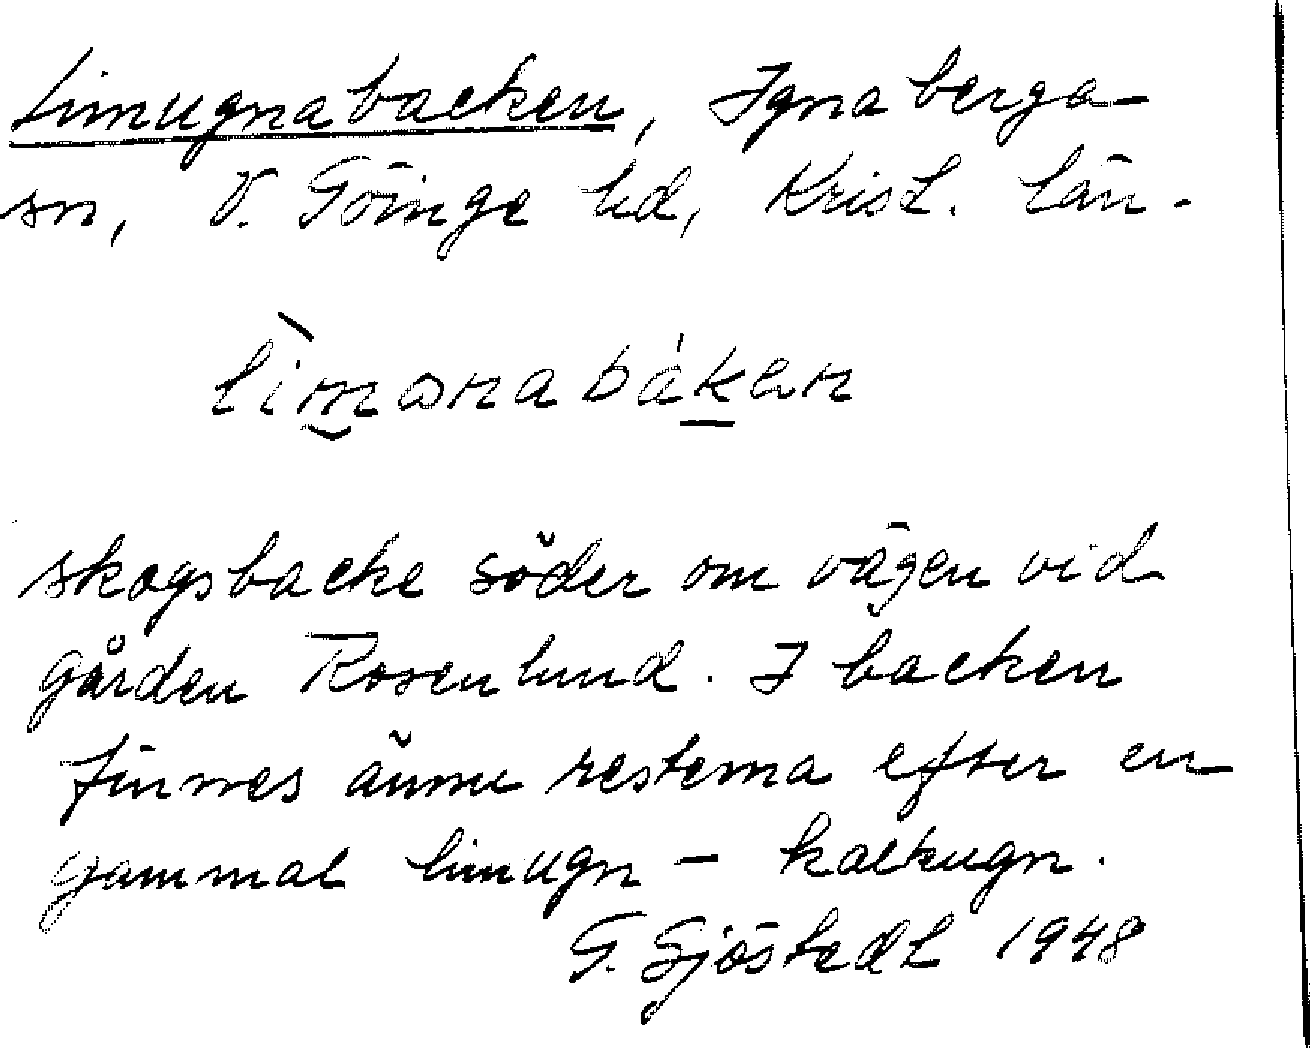 Limugnabacken, Ignaberga
sn, V. Göinge hd, Krist. län.
skogsbacke söder om vägen vid
gården Rosenlund. I backen
finnes ännu resterna efter en
gammal limugn – kalkugn.
G. Sjöstedt 1948